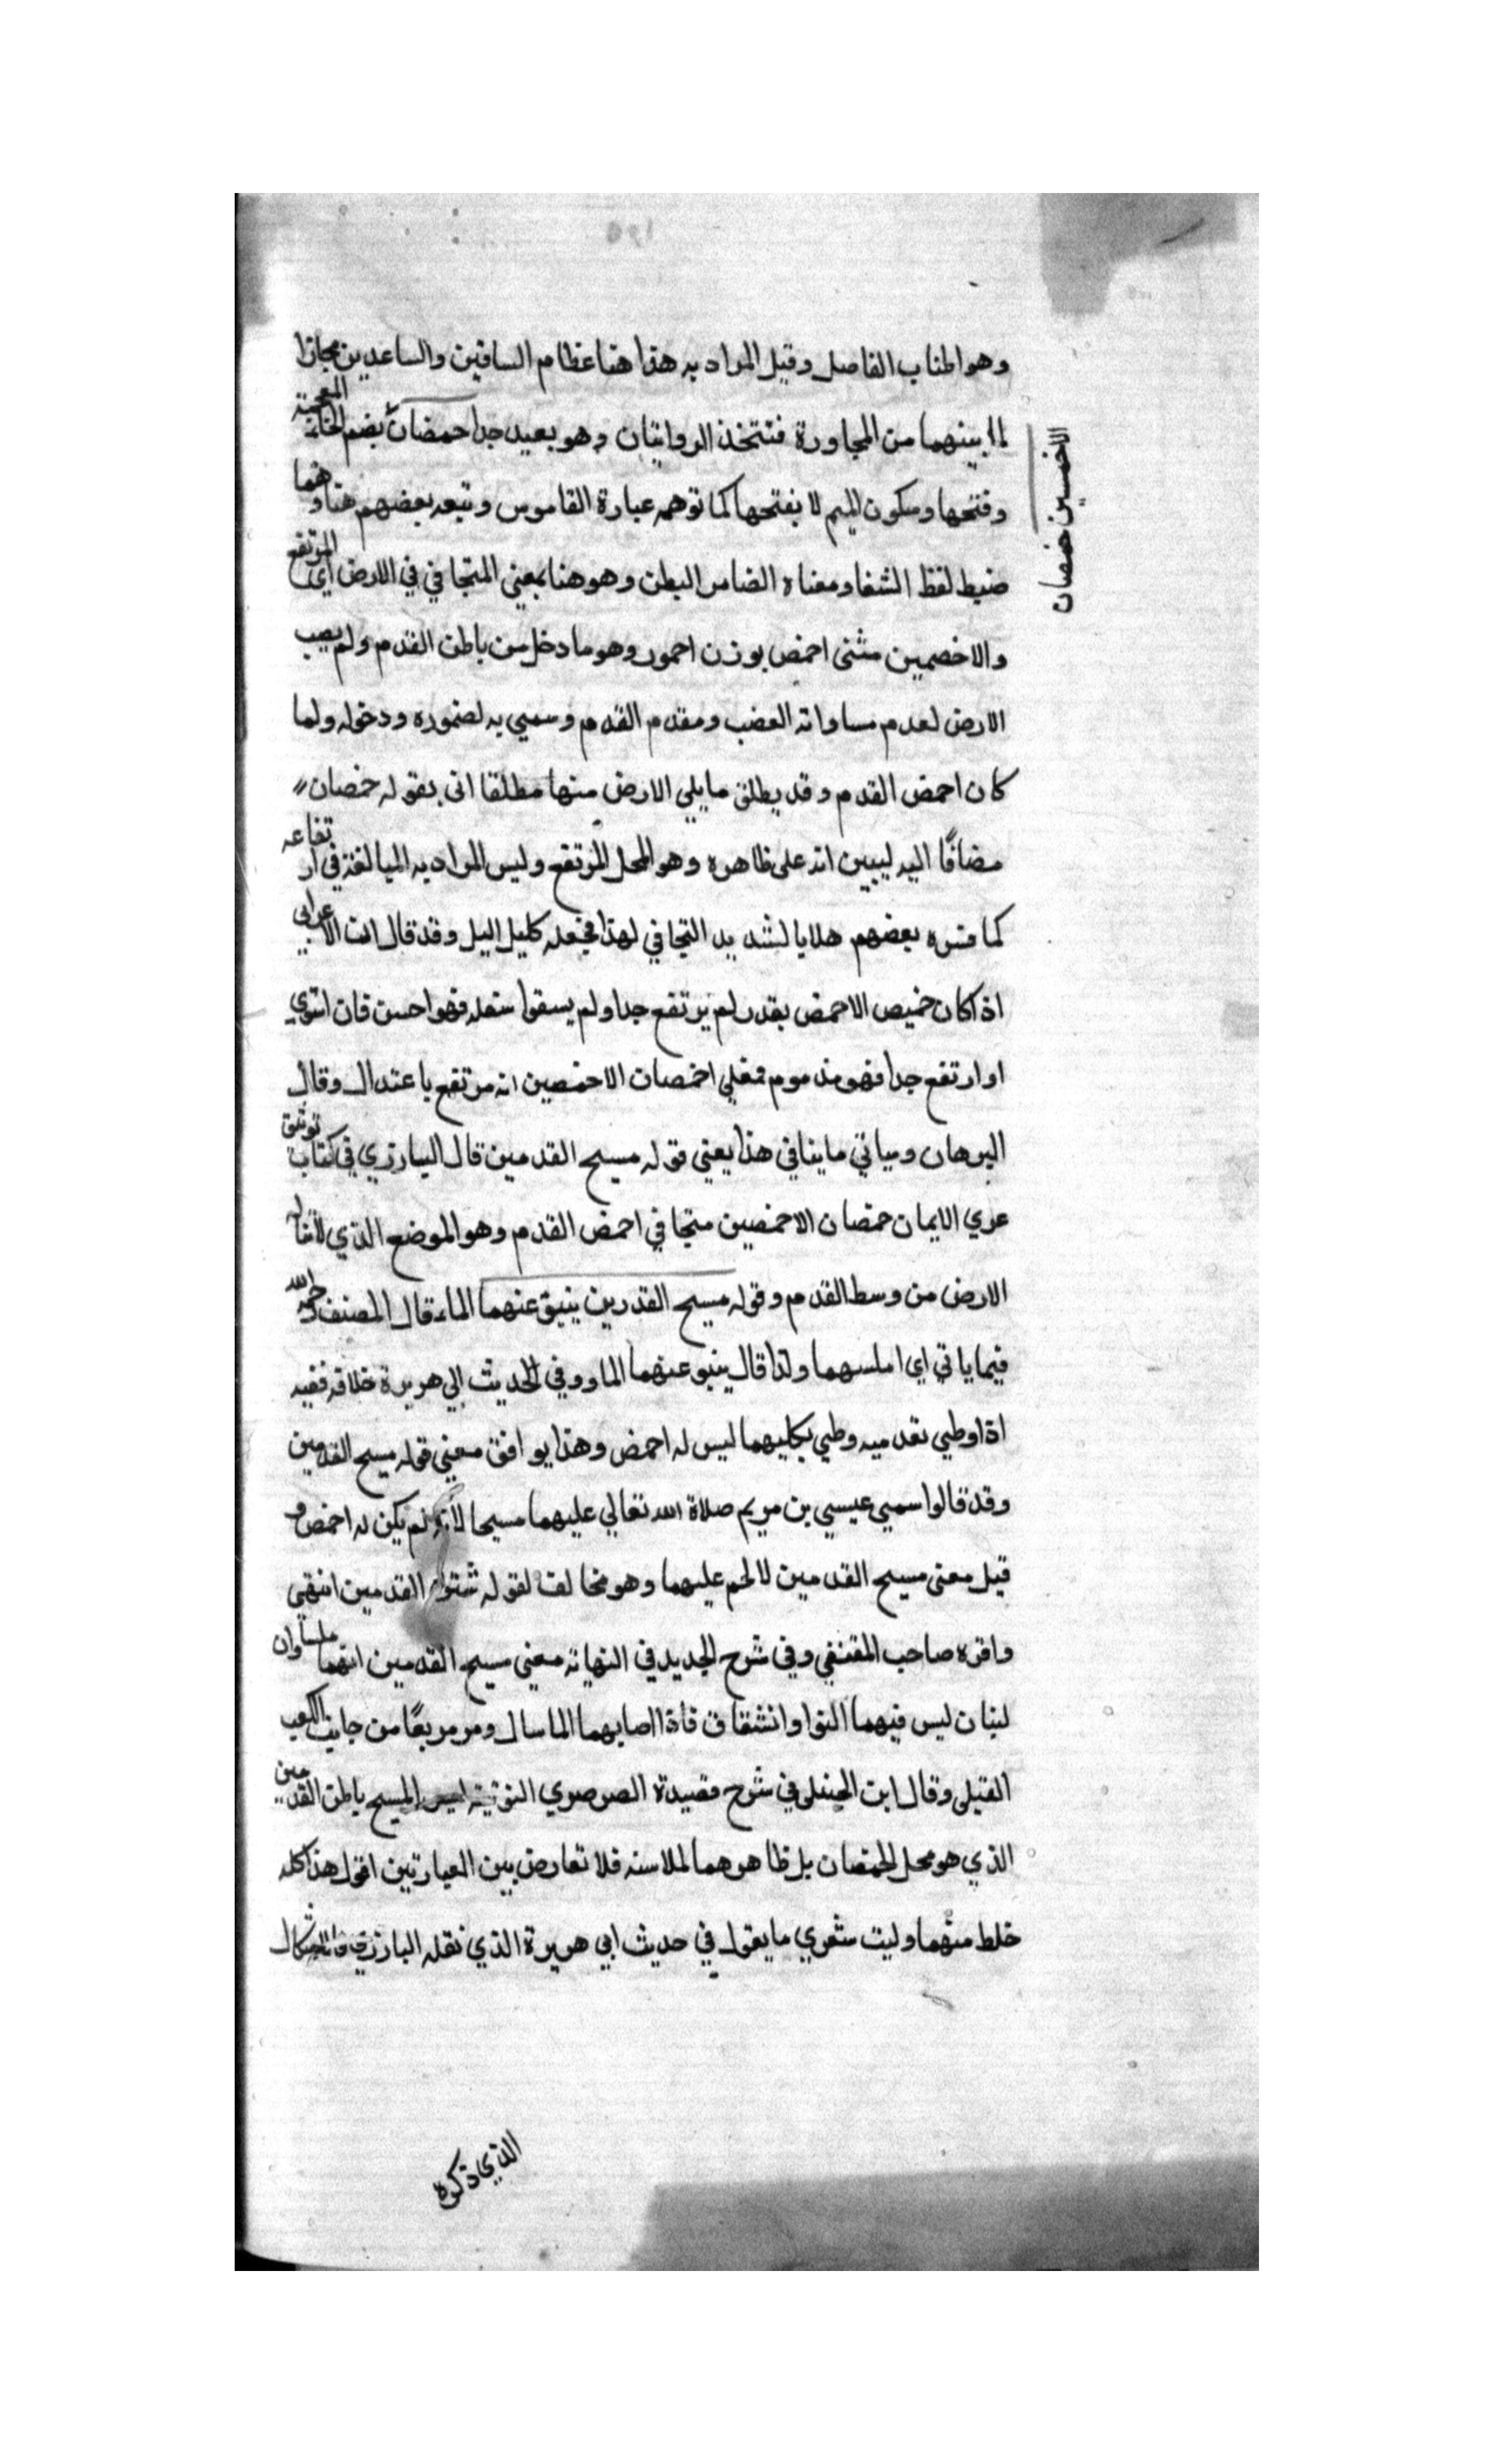 وهو اطناب الفاصل وقيل المراد به هذا هنا عظام الساقين والساعدين مجازا
لما بينهما من المجاورة فتتخذ الروايتان وهو بعيد جدا خمصان بضم الخاء المعجمة
وفتحها وسكون الميم لا بفتحها كما توهمه عبارة القاموس وتبعه بعضهم هنا وهما
ضبط لفظ الشفا ومعناه الضامر البطن وهو هنا بمعني المتجافي في الارض اي المرتفع
والاخصمين مثنى احمض بوزن احمور وهو ما دخل من باطن القدم ولم يصب
الارض لعدم مساواته العضب ومقدم القدم وسمي به لضموره ودخوله ولما
كان احمض القدم وقد يطلق ما يلي الارض منها مطلقا اتى بقوله خمصان
مضافًا اليه ليبين انه على ظاهره وهو المحل المرتفع وليس المراد به المبالغة في ارتفاعه
كما فسره بعضهم هلايا لشديد التجافي لهذا فجعله كليل اليل وقد قال ابن الاعرابي
اذا كان خميص الاحمض بقدر لم يرتفع جدا ولم يسقوا سفله فهو احسن فان استوي
او ارتفع جدا فهو مذموم فمعلي اخمصات الاخمصين انه مرتفع باعتدال وقال
البرهان وسياتي ما ينافي هذا يعني قوله مسيح القدمين قال البارزي في كتاب توثيق
عري الايمان حمصان الاحمصين متجافي احمض القدم وهو الموضع الذي لا تناله
الارض من وسط القدم وقوله مسيح القدرين ينبق عنهما الماء قال المصنف رحمه الله
فيما ياتي اي املسهما ولذا قال ينبو عنهما الماء وفي الحديث ابي هريرة خلافه ففيه
اذا وطي بقدميه وطي بكليهما ليس له احمض وهذا يوافق معني قوله مسيح القدمين
وقد قالوا سمي عيسي بن مريم صلاة الله تعالي عليهما مسيحا لانه لم يكن له احمض و
قيل معنى مسيح القدمين لا لحم عليهما وهو مخالف لقوله شتوا القدمين انتهي
واقره صاحب المقتفي وفي شرح الجديد في النهاية معني مسيح القدمين انهما ملساوان
لبنان ليس فيهما التوا وانشقاق فاذا اصابهما الما سال ومر مربعًا من جانب الكعب
القبلى وقال ابن الحنبلى في شرح قصيدة الصرصري النونية ليس المسيح باطن القدمين
الذي هو محل الخمصان بل ظاهرهما لملاسنه فلا تعارض بين العبارتين اقول هذا كله
خلط منهما وليت شعري ما يقول في حديث ابي هريرة الذي نقله البارزي فالاشكال
الاخمسين خمصان
الذي ذكره